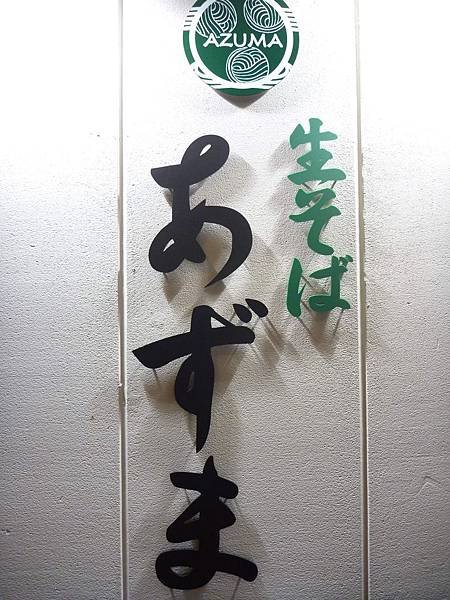 AZUMA
生そば
あずま